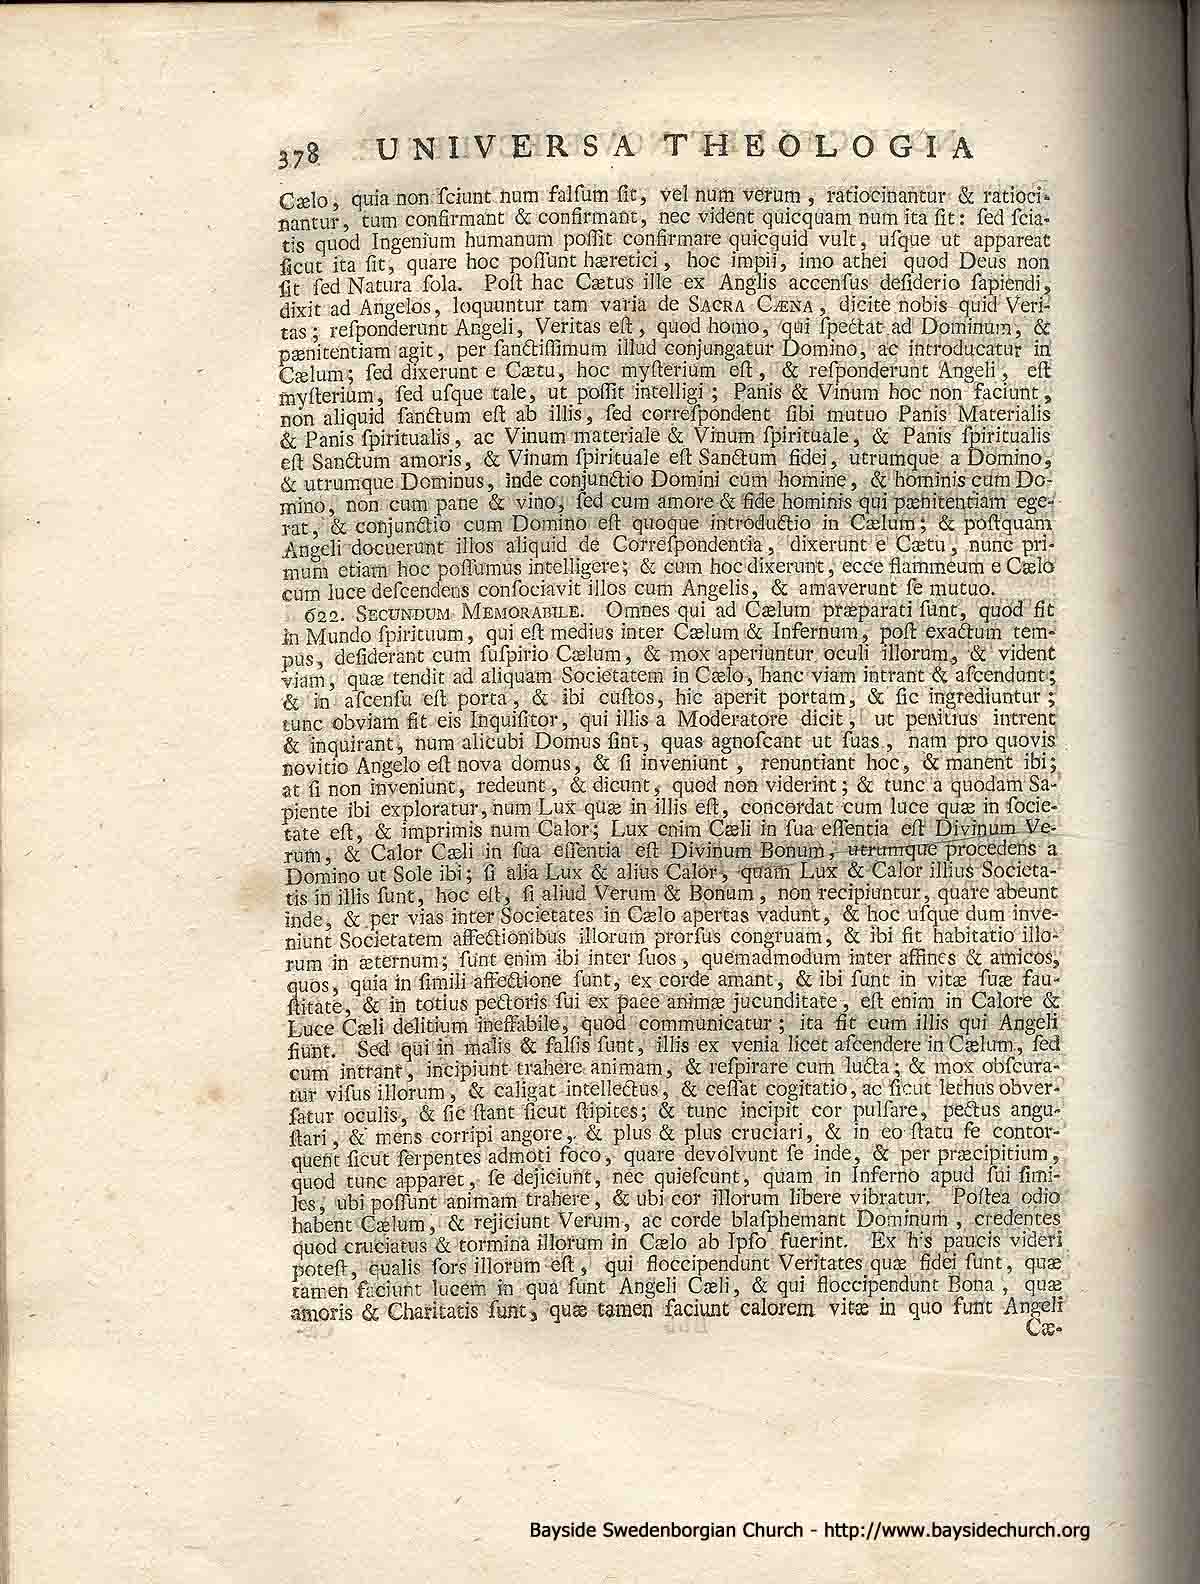 378 UNIVERSA THEOLOGIA
Cælo, quia non ſciunt num falſum ſit, vel num verum, ratiocinantur & ratioci-
nantur, tum confirmant & confirmant, nec vident quicquam num ita ſit: ſed ſcia-
tis quod Ingenium humanum poſſit confirmare quicquid vult, uſque ut appareat
ſicut ita ſit, quare hoc poſſunt hæretici, hoc impii, imo athei quod Deus non
ſit ſed Natura ſola. Poſt hac Cætus ille ex Anglis accenſus deſiderio ſapiendi,
dixit ad Angelos, loquuntur tam varia de SACRA CÆNA, dicite nobis quid Veri-
tas; reſponderunt Angeli, Veritas eſt, quod homo, qui ſpectat ad Dominum, &
pænitentiam agit, per ſanctiſſimum illud conjungatur Domino, ac introducatur in
Cælum; ſed dixerunt e Cætu, hoc myſterium eſt, & reſponderunt Angeli, eſt
myſterium, ſed uſque tale, ut poſſit intelligi; Panis & Vinum hoc non faciunt,
non aliquid ſanctum eſt ab illis, ſed correſpondent ſibi mutuo Panis Materialis
& Panis ſpiritualis, ac Vinum materiale & Vinum ſpirituale, & Panis ſpiritualis
eſt Sanctum amoris, & Vinum ſpirituale eſt Sanctum fidei, utrumque a Domino,
& utrumque Dominus, inde conjunctio Domini cum homine, & hominis cum Do-
mino, non cum pane & vino, ſed cum amore & fide hominis qui pænitentiam ege-
rat, & conjunctio cum Domino eſt quoque introductio in Cælum; & poſtquam
Angeli docuerunt illos aliquid de Correſpondentia, dixerunt e Cætu, nunc pri-
mum etiam hoc poſſumus intelligere; & cum hoc dixerunt, ecce flammeum e Cælo
cum luce deſcendens conſociavit illos cum Angelis, & amaverunt ſe mutuo.
622. SECUNDUM MEMORABILE. Omnes qui ad Cælum præparati ſunt, quod fit
in Mundo ſpirituum, qui eſt medius inter Cælum & Infernum, poſt exactum tem-
pus, deſiderant cum ſuſpirio Cælum, & mox aperiuntur oculi illorum, & vident
viam, quæ tendit ad aliquam Societatem in Cælo, hanc viam intrant & aſcendunt;
& in aſcenſu eſt porta, & ibi cuſtos, hic aperit portam, & ſic ingrediuntur;
tunc obviam fit eis Inquiſitor, qui illis a Moderatore dicit, ut penitius intrent
& inquirant, num alicubi Domus ſint, quas agnoſcant ut ſuas, nam pro quovis
novitio Angelo eſt nova domus, & ſi inveniunt, renuntiant hoc, & manent ibi;
at ſi non inveniunt, redeunt, & dicunt, quod non viderint; & tunc a quodam Sa-
piente ibi exploratur, num Lux quæ in illis eſt, concordat cum luce quæ in ſocie-
tate eſt, & imprimis num Calor; Lux enim Cæli in ſua eſſentia eſt Divinum Ve-
rum, & Calor Cæli in ſua eſſentia eſt Divinum Bonum, utrumque procedens a
Domino ut Sole ibi; ſi alia Lux & alius Calor, quam Lux & Calor illius Societa-
tis in illis ſunt, hoc eſt, ſi aliud Verum & Bonum, non recipiuntur, quare abeunt
inde, & per vias inter Societates in Cælo apertas vadunt, & hoc uſque dum inve-
niunt Societatem affectionibus illorum prorſus congruam, & ibi fit habitatio illo-
rum in æternum; ſunt enim ibi inter ſuos, quemadmodum inter affines & amicos,
quos, quia in ſimili affectione ſunt, ex corde amant, & ibi ſunt in vitæ ſuæ fau-
ſtitate, & in totius pectoris ſui ex pace animæ jucunditate, eſt enim in Calore &
Luce Cæli delitium ineffabile, quod communicatur; ita fit cum illis qui Angeli
fiunt. Sed qui in malis & falſis ſunt, illis ex venia licet aſcendere in Cælum, ſed
cum intrant, incipiunt trahere animam, & reſpirare cum lucta; & mox obſcura-
tur viſus illorum, & caligat intellectus, & ceſſat cogitatio, ac ſicut lethus obver-
ſatur oculis, & ſic ſtant ſicut ſtipites; & tunc incipit cor pulſare, pectus angu-
ſtari, & mens corripi angore, & plus & plus cruciari, & in eo ſtatu ſe contor-
quent ſicut ſerpentes admoti foco, quare devolvunt ſe inde, & per præcipitium,
quod tunc apparet, ſe dejiciunt, nec quieſcunt, quam in Inferno apud ſui ſimi-
les, ubi poſſunt animam trahere, & ubi cor illorum libere vibratur. Poſtea odio
habent Cælum, & rejiciunt Verum, ac corde blaſphemant Dominum, credentes
quod cruciatus & tormina illorum in Cælo ab Ipſo fuerint. Ex his paucis videri
poteſt, qualis ſors illorum eſt, qui floccipendunt Veritates quæ fidei ſunt, quæ
tamen faciunt lucem in qua ſunt Angeli Cæli, & qui floccipendunt Bona, quæ
amoris & Charitatis ſunt, quæ tamen faciunt calorem vitæ in quo ſunt Angeli
Cæ-
Bayside Swedenborgian Church - http://www.baysidechurch.org